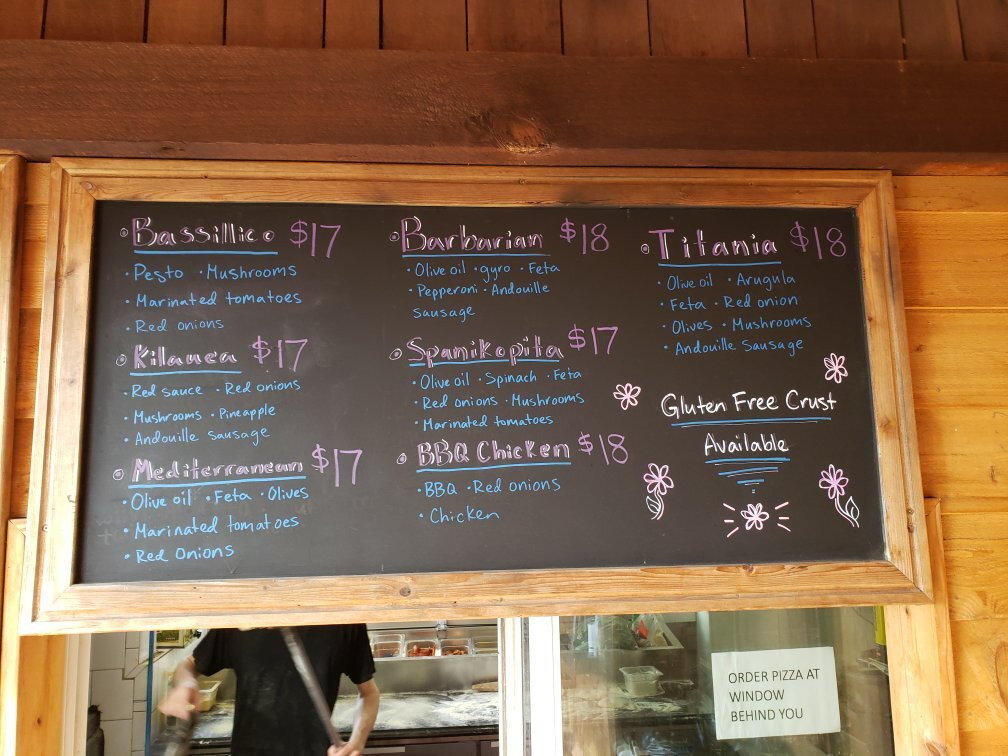 Bassillico $17
· Pesto · Mushrooms
· Marinated tomatoes
· Red onions
Kilauea $17
· Red sauce · Red onions
· Mushrooms · Pineapple
· Andouille sausage
Mediterranean $17
· Olive oil · Feta · Olives
· Marinated tomatoes
· Red Onions
Barbarian $18
· Olive oil · gyro · Feta
· Pepperoni · Andouille
Sausage
Spanikopita $17
· Olive oil · Spinach · Feta
· Red onions · Mushrooms
· Marinated tomatoes
BBQ Chicken $18
· BBQ · Red onions
· Chicken
Titania $18
· Olive oil · Arugula
· Feta · Red onion
· Olives · Mushrooms
· Andouille Sausage
Gluten Free Crust
Available
ORDER PIZZA AT
WINDOW
BEHIND YOU